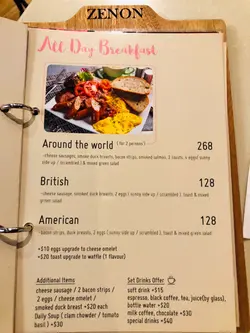 ZENON
All Day Breakfast
Around the world ( for 2 persons ) 268
-cheese sausages, smoke duck breasts, bacon strips, smoked salmon, 2 toasts, 4 eggs( sunny
side up / scrambled ), & mixed green salad
British 128
-cheese sausage, smoked duck breast, 2 eggs ( sunny side up / scrambled ), toast & mixed green salad
American 128
-bacon strips, duck breasts, 2 eggs ( sunny side up / scrambled ), toast & mixed
green salad
+$10 eggs upgrade to cheese omelet
+$20 toast upgrade to waffle (1 flavour)
Additional Items
cheese sausage / 2 bacon strips /
2 eggs / cheese omelet /
smoked duck breast +$20 each
Daily Soup ( clam chowder / tomato
basil ) +$30
Set Drinks Offer
soft drink +$15
espresso, black coffee, tea, juice(by glass),
bottle water +$20
milk coffee, chocolate +$30
special drinks +$40